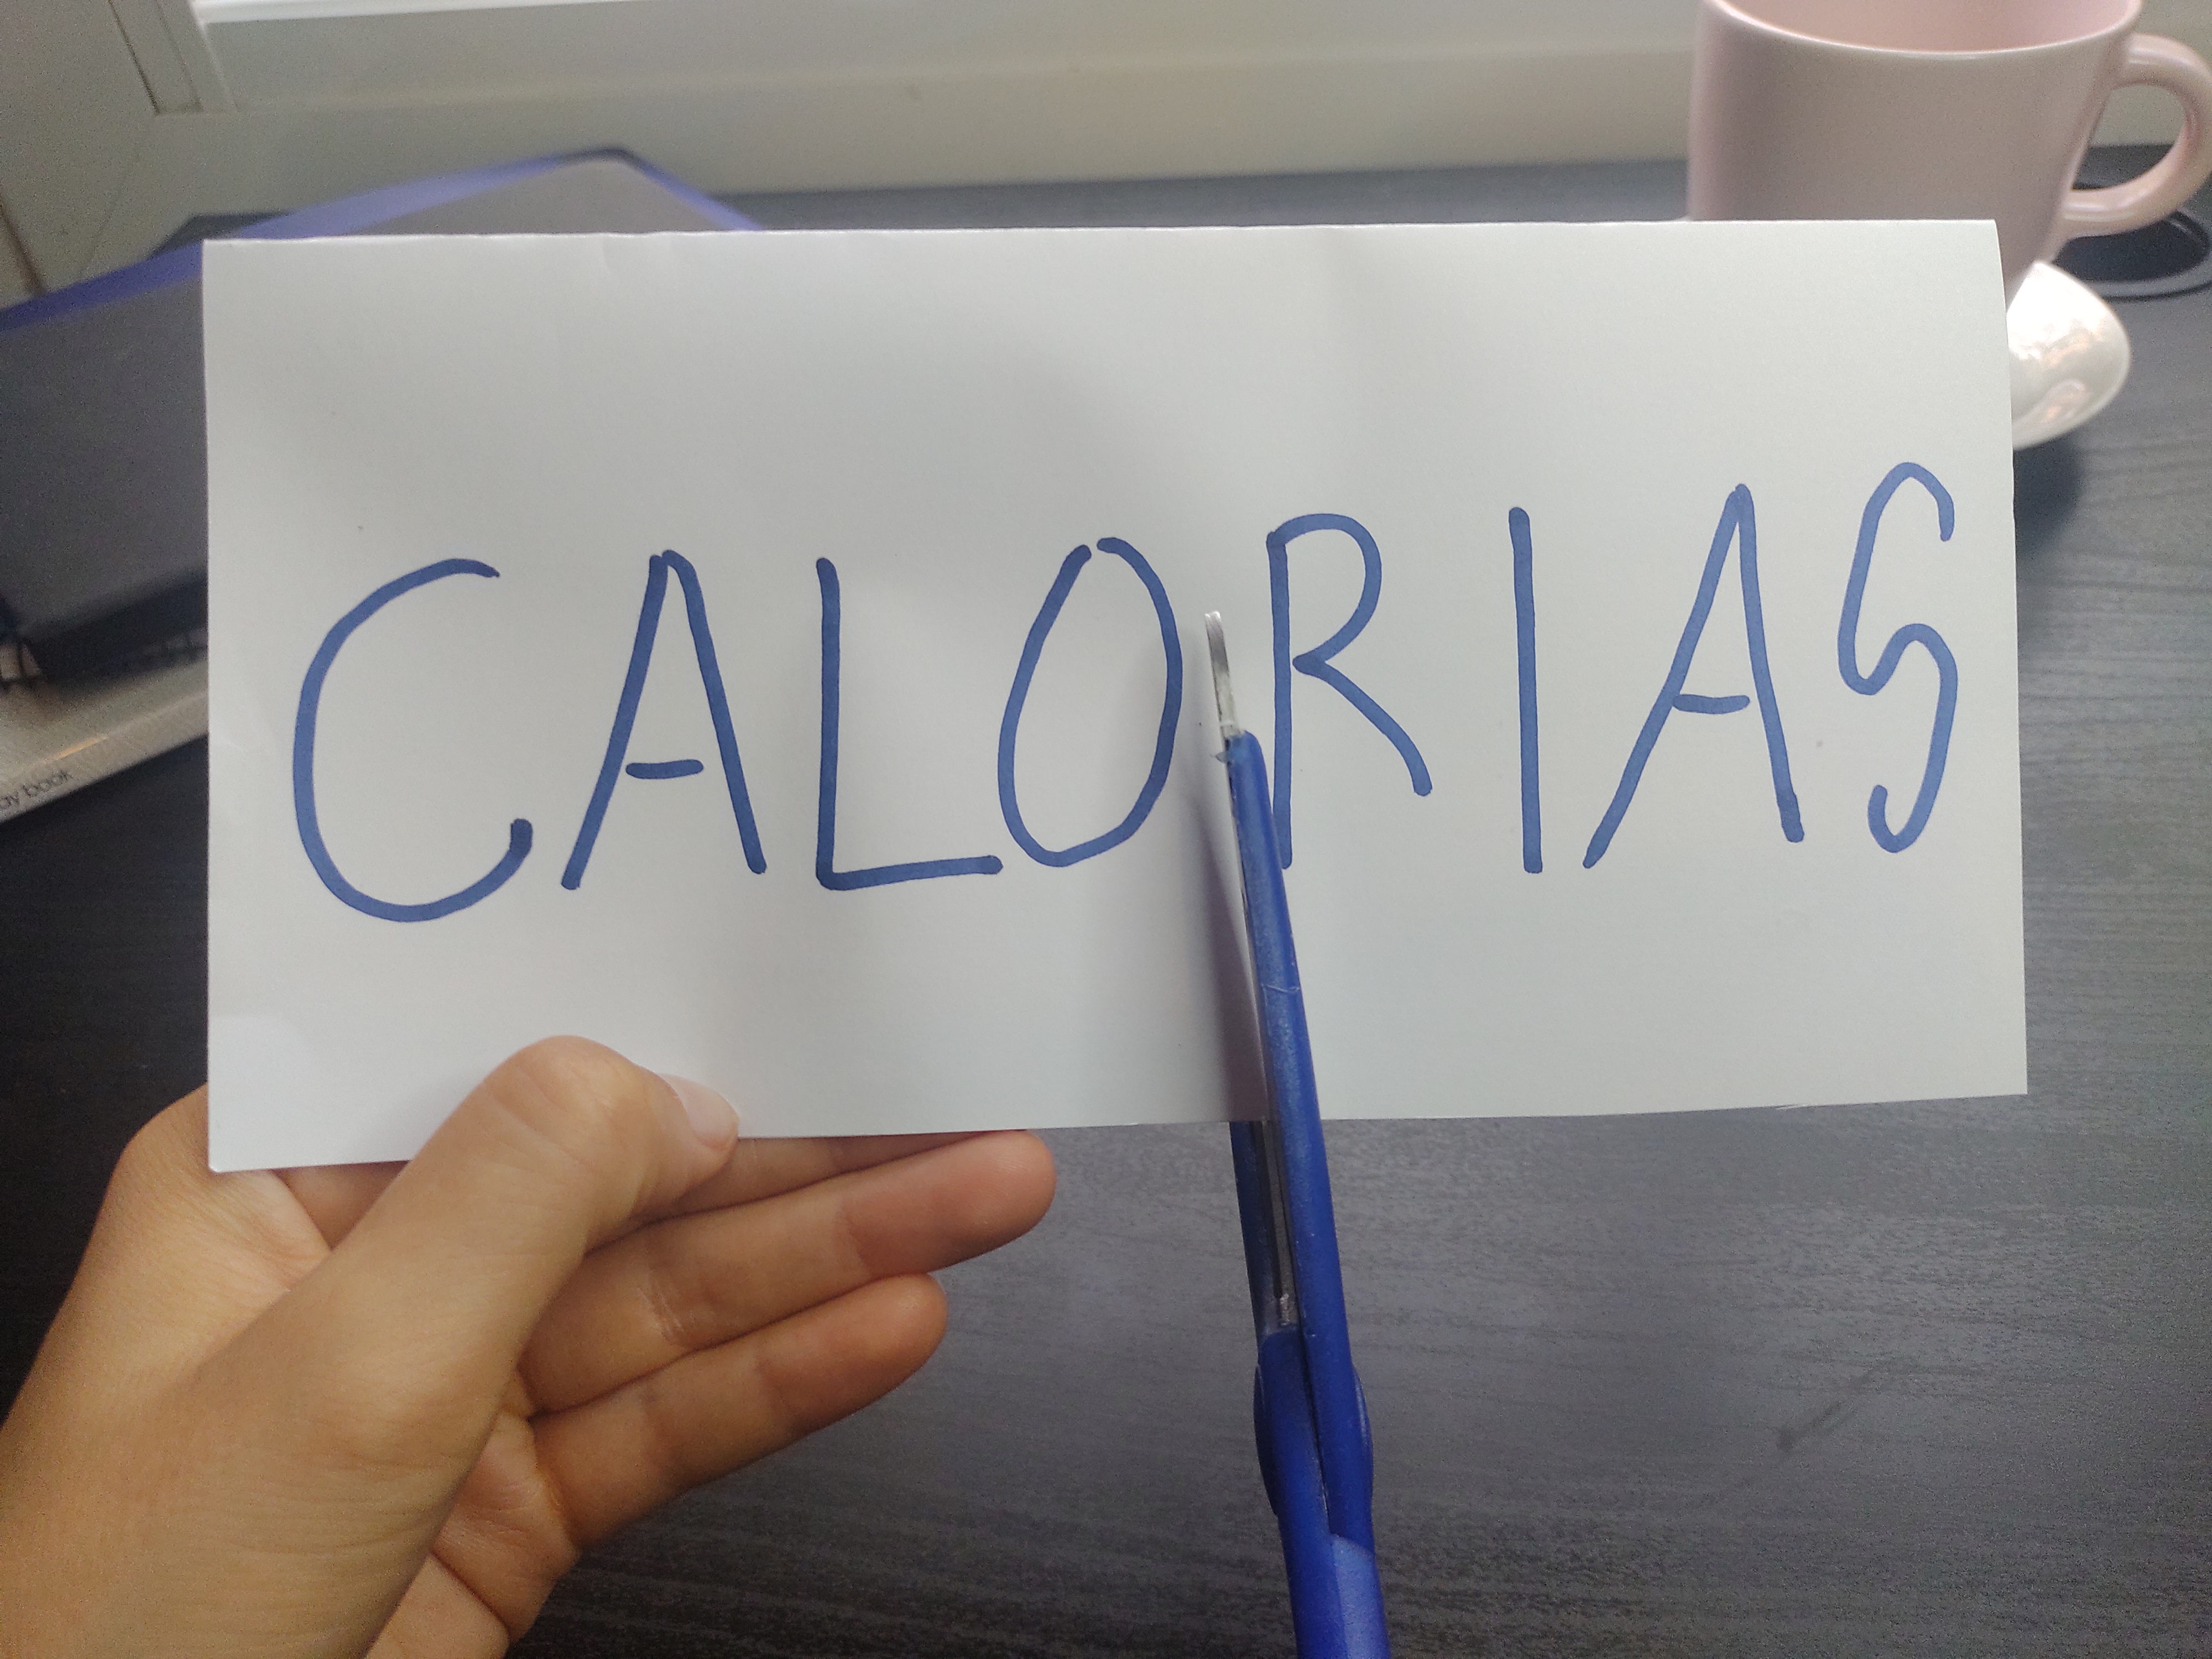 CALORIAS
ay book